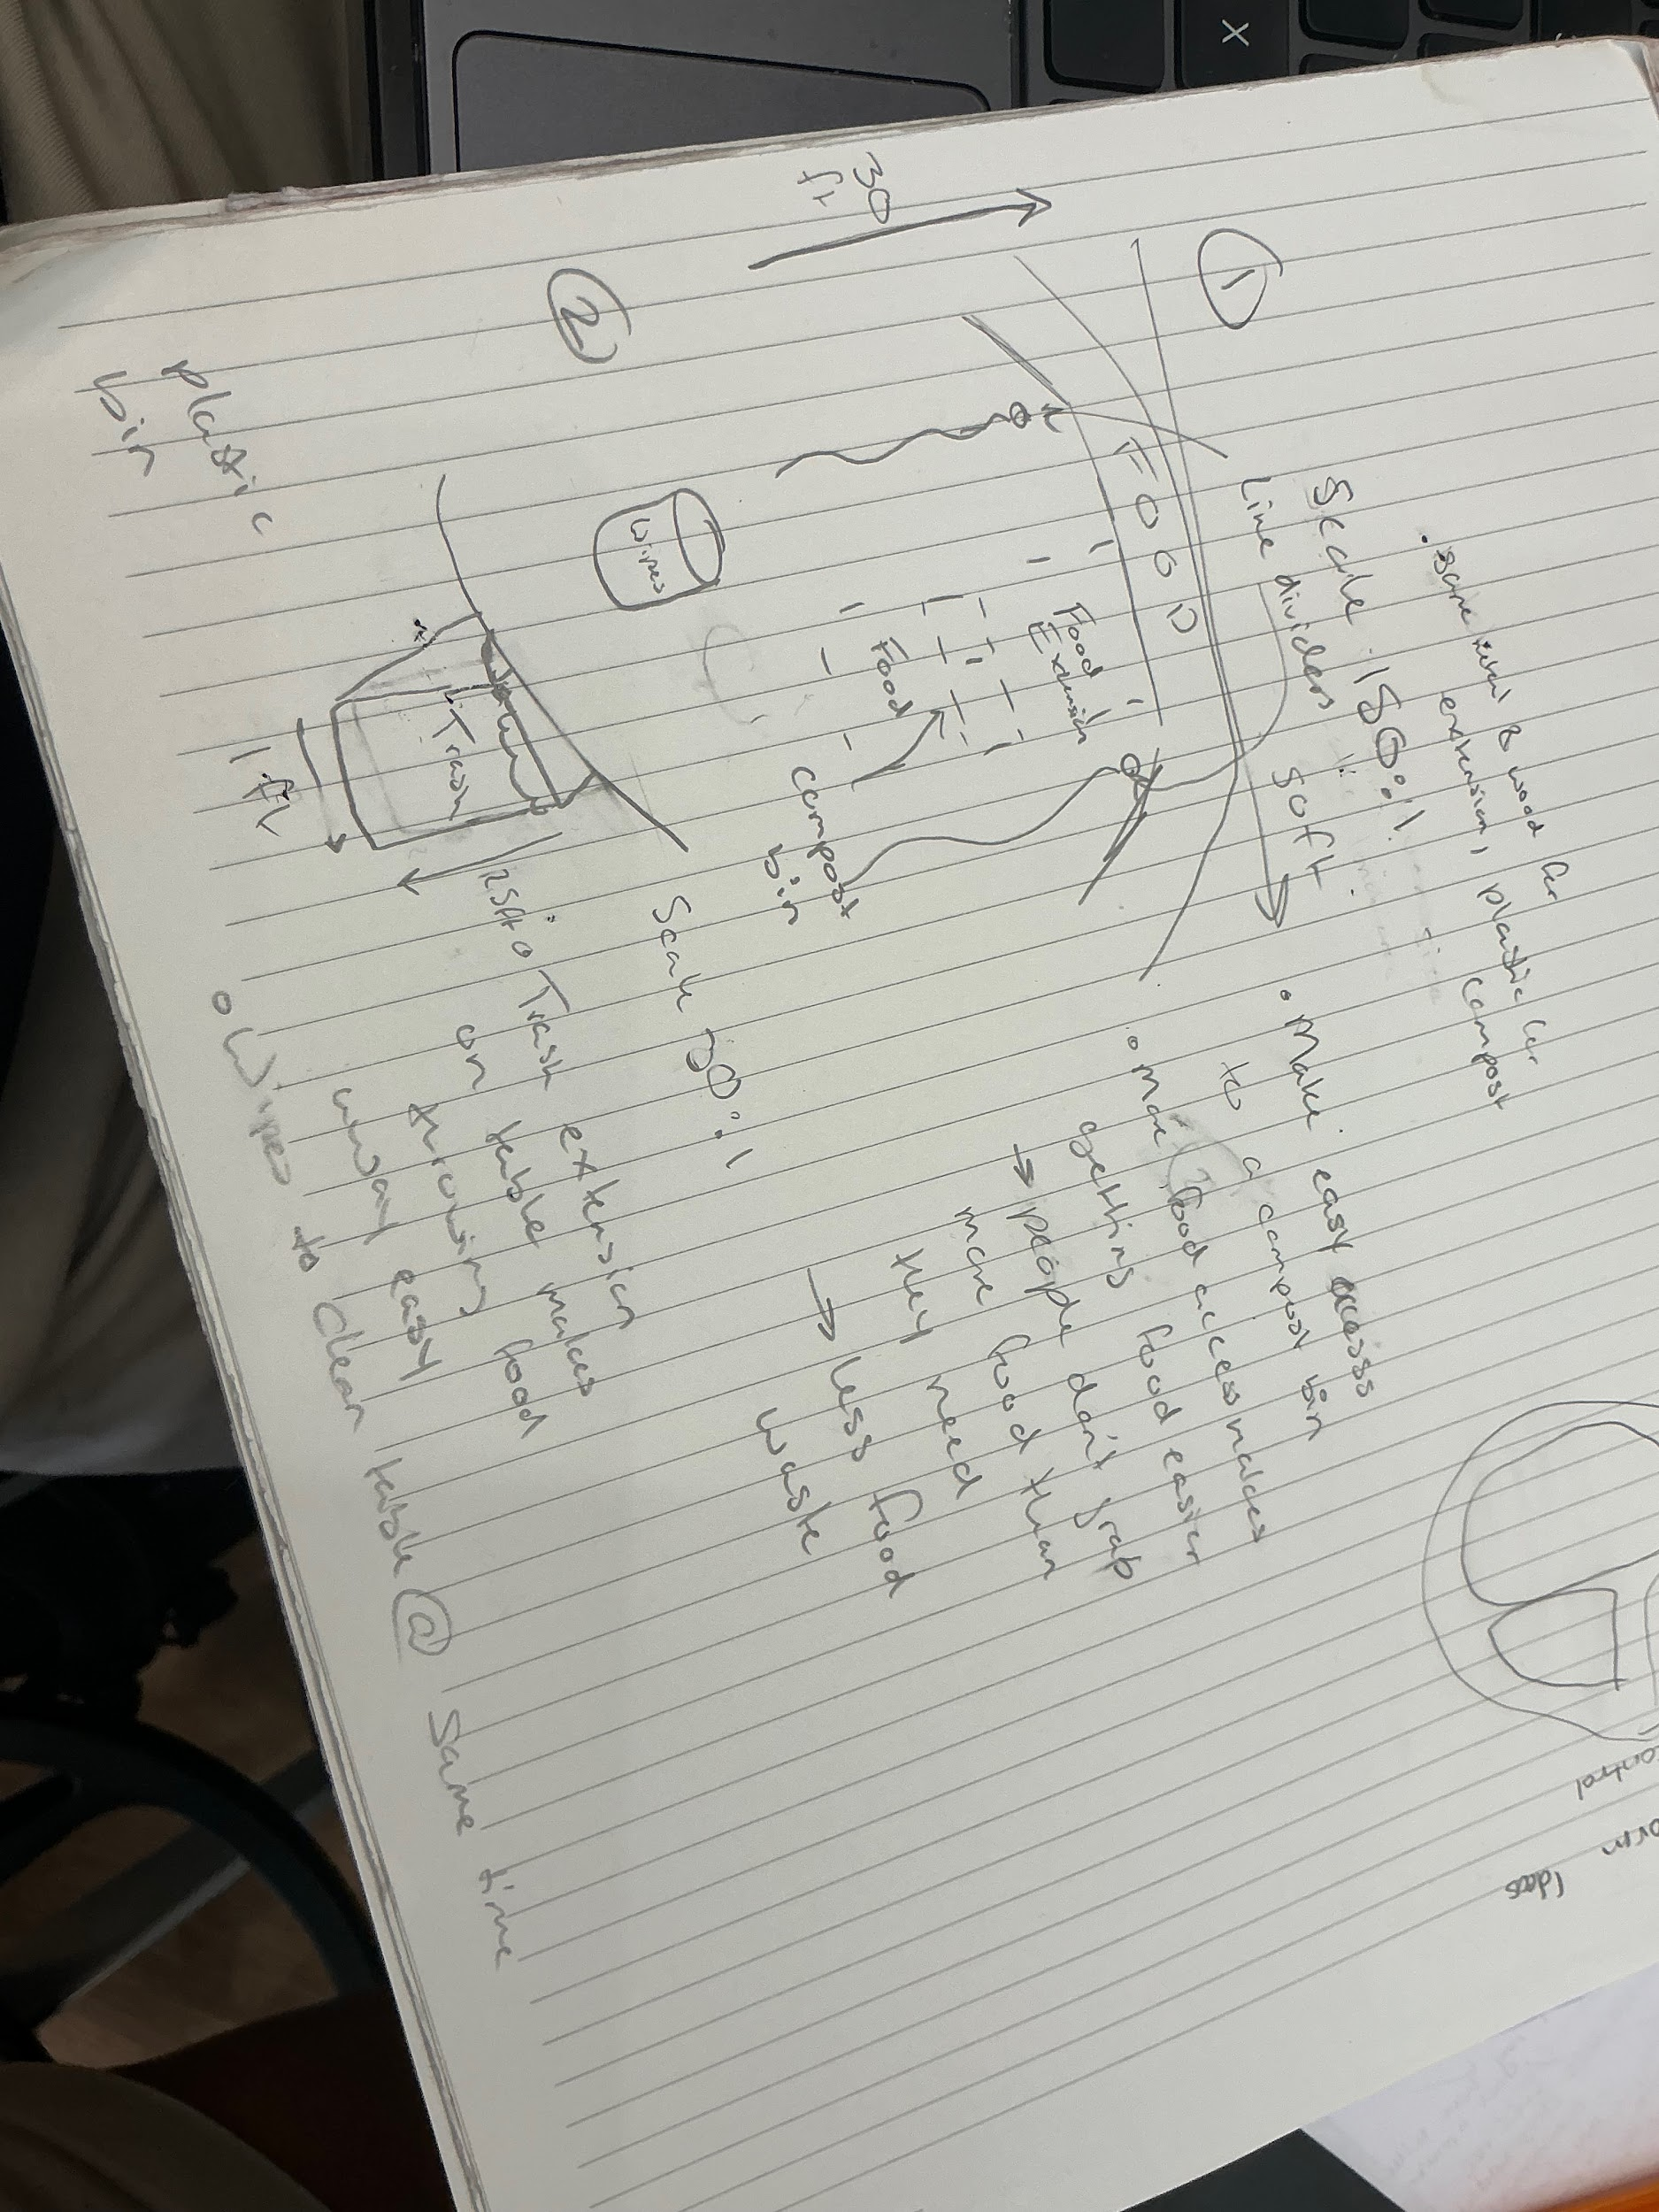 ①
30
ft
• same metal & wood for
extension, plastic for
compost
Scale 150:1
Line dividers
50ft
FOOD
Food
Extension
Food
compost
bin
• Make easy access
to a compost bin
• more food access makes
getting food easier
→ people don't grab
more food than
they need
→ less food
waste
②
wipes
Scale 30:1
Trash
1 ft
Plastic
bin
o Trash extension
on table makes
throwing food
away easy
o Wipes to clean table @ same time
control
Ideas
X